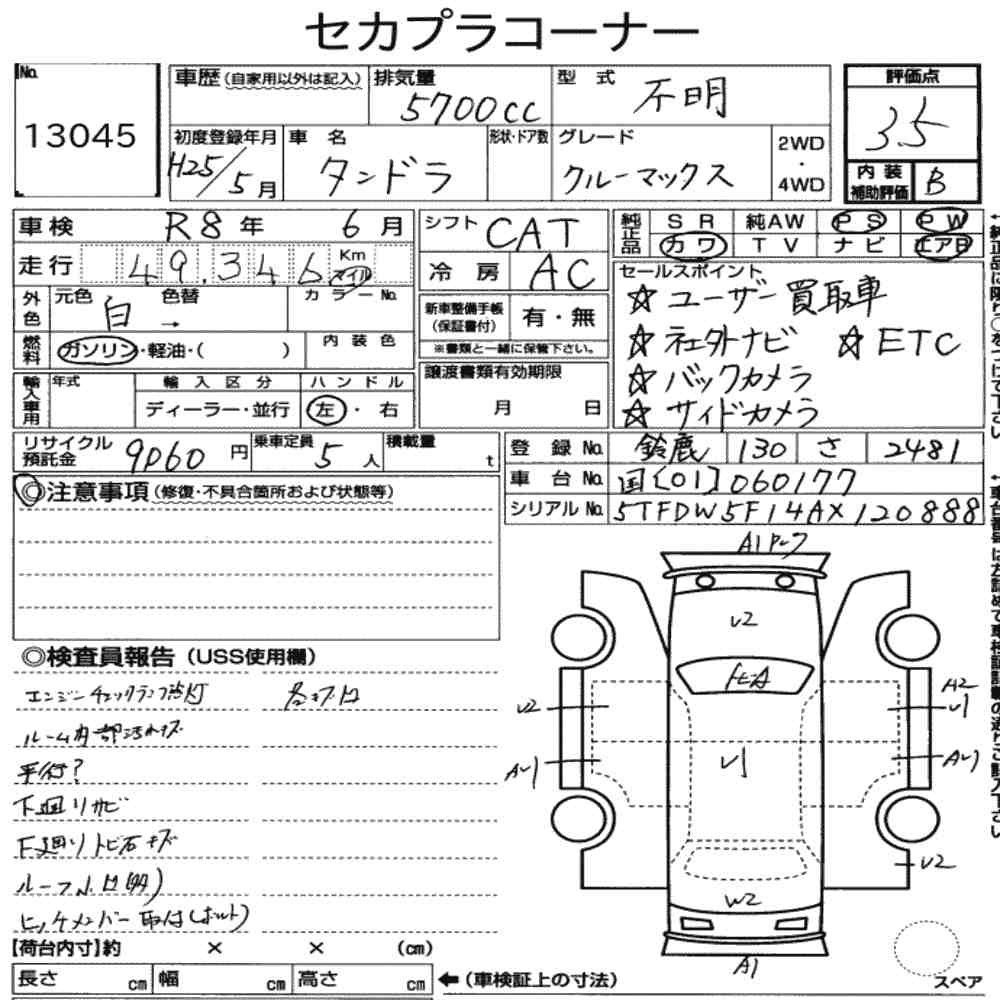 セカプラコーナー
No. 13045
車歴 (自家用以外は記入)
排気量 5700cc
型式 不明
評価点 3.5
初度登録年月 H25/5月
車名 タンドラ
形状・ドア数
グレード クルーマックス
2WD・4WD
内装補助評価 B
車検 R8年 6月
シフト CAT
純正品 SR 純AW PS PW
カワ TV ナビ エアB
走行 49,346 Km マイル
冷房 AC
セールスポイント
☆ユーザー買取車
☆社外ナビ ☆ETC
☆バックカメラ
☆サイドカメラ
外色 元色 白 → 色替 カラーNo.
新車整備手帳(保証書付) 有・無
※書類と一緒に保管下さい。
燃料 ガソリン・軽油・( ) 内装色
譲渡書類有効期限 月 日
輸入車用 年式 輸入区分 ハンドル
ディーラー・並行 左・右
リサイクル預託金 9060円 乗車定員 5人 積載量 t
登録No. 鈴鹿 130 さ 2481
車台No. 国[01]060177
シリアルNo. 5TFDW5F14AX120888
◎注意事項 (修復・不具合箇所および状態等)
◎検査員報告 (USS使用欄)
エンジンチェックランプ点灯
ルーム内部汚れキズ
平行?
下廻りサビ
下廻りトビ石キズ
ヒッチメンバー取付(ボルト)
A1
V2
V2
A2
V1
V1
V2
W2
A1
【荷台内寸】約 × × (cm)
長さ cm 幅 cm 高さ cm ←(車検証上の寸法)
スペア